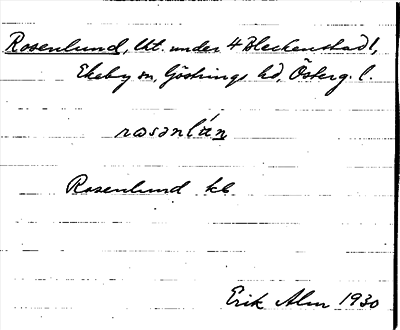 Rosenlund, Ut. under 4 Bleckenstad 1,
Ekeby sn, Göstrings hd, Österg. l.
rosənlún
Rosenlund kb
Erik Alm 1930